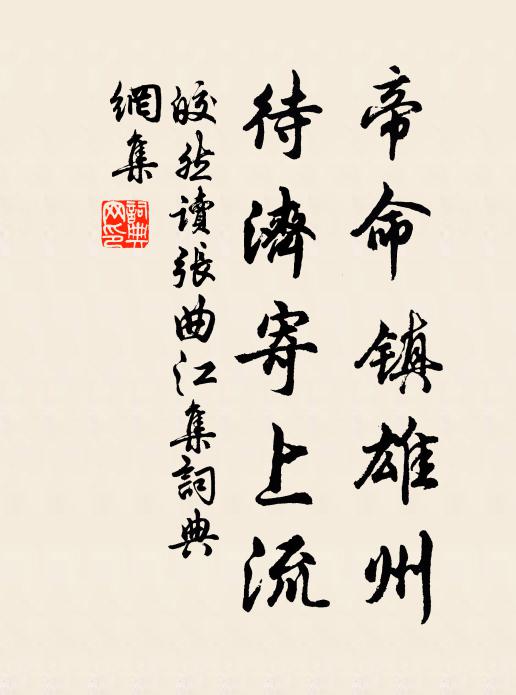 帝命镇雄州
待濟寄上流
皎然讀張曲江集詞典
網集
詞典
网印